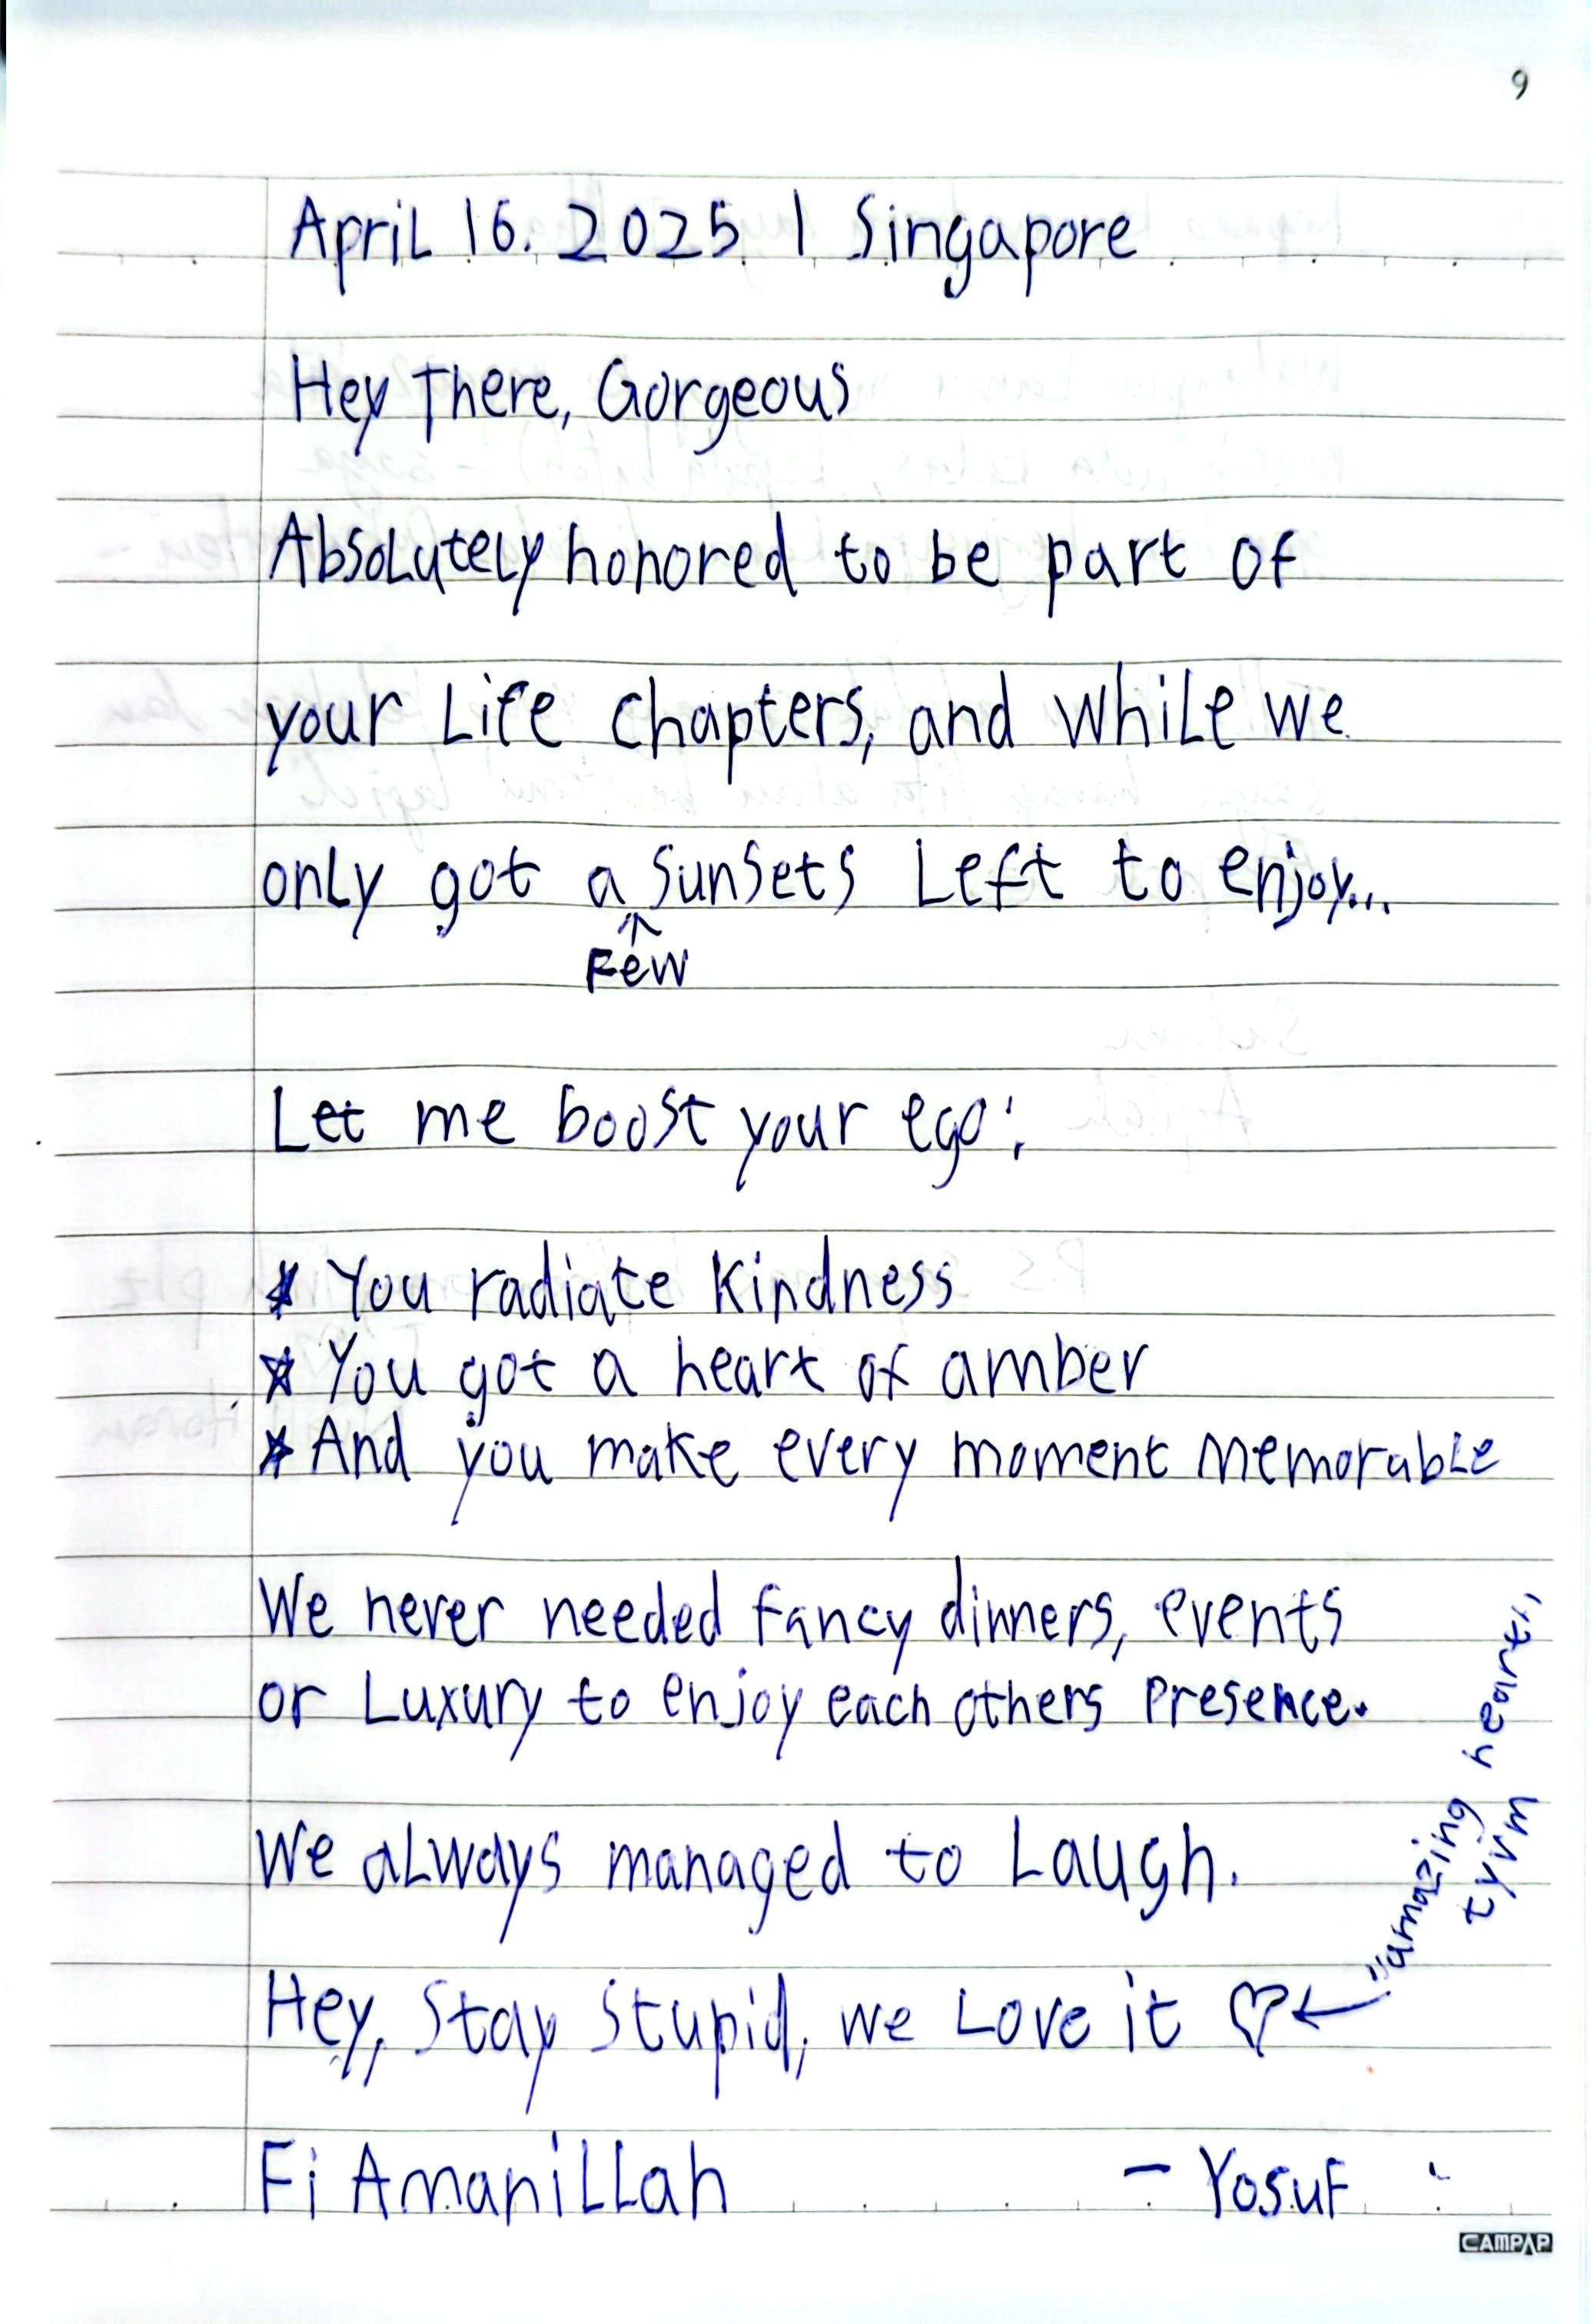 9
April 16. 2025 | Singapore
Hey There, Gorgeous
Absolutely honored to be part of
your Life chapters, and while we
only got a sunsets Left to enjoy...
Few
Let me boost your ego:
* You radiate Kindness
* You got a heart of amber
* And you make every moment memorable
We never needed fancy dinners, events
or Luxury to enjoy each others presence.
We always managed to Laugh.
Hey, Stay Stupid, we Love it ♡ ←
"amazing heart"
tyvm
Fi Amanillah - Yosuf
CAMPAP